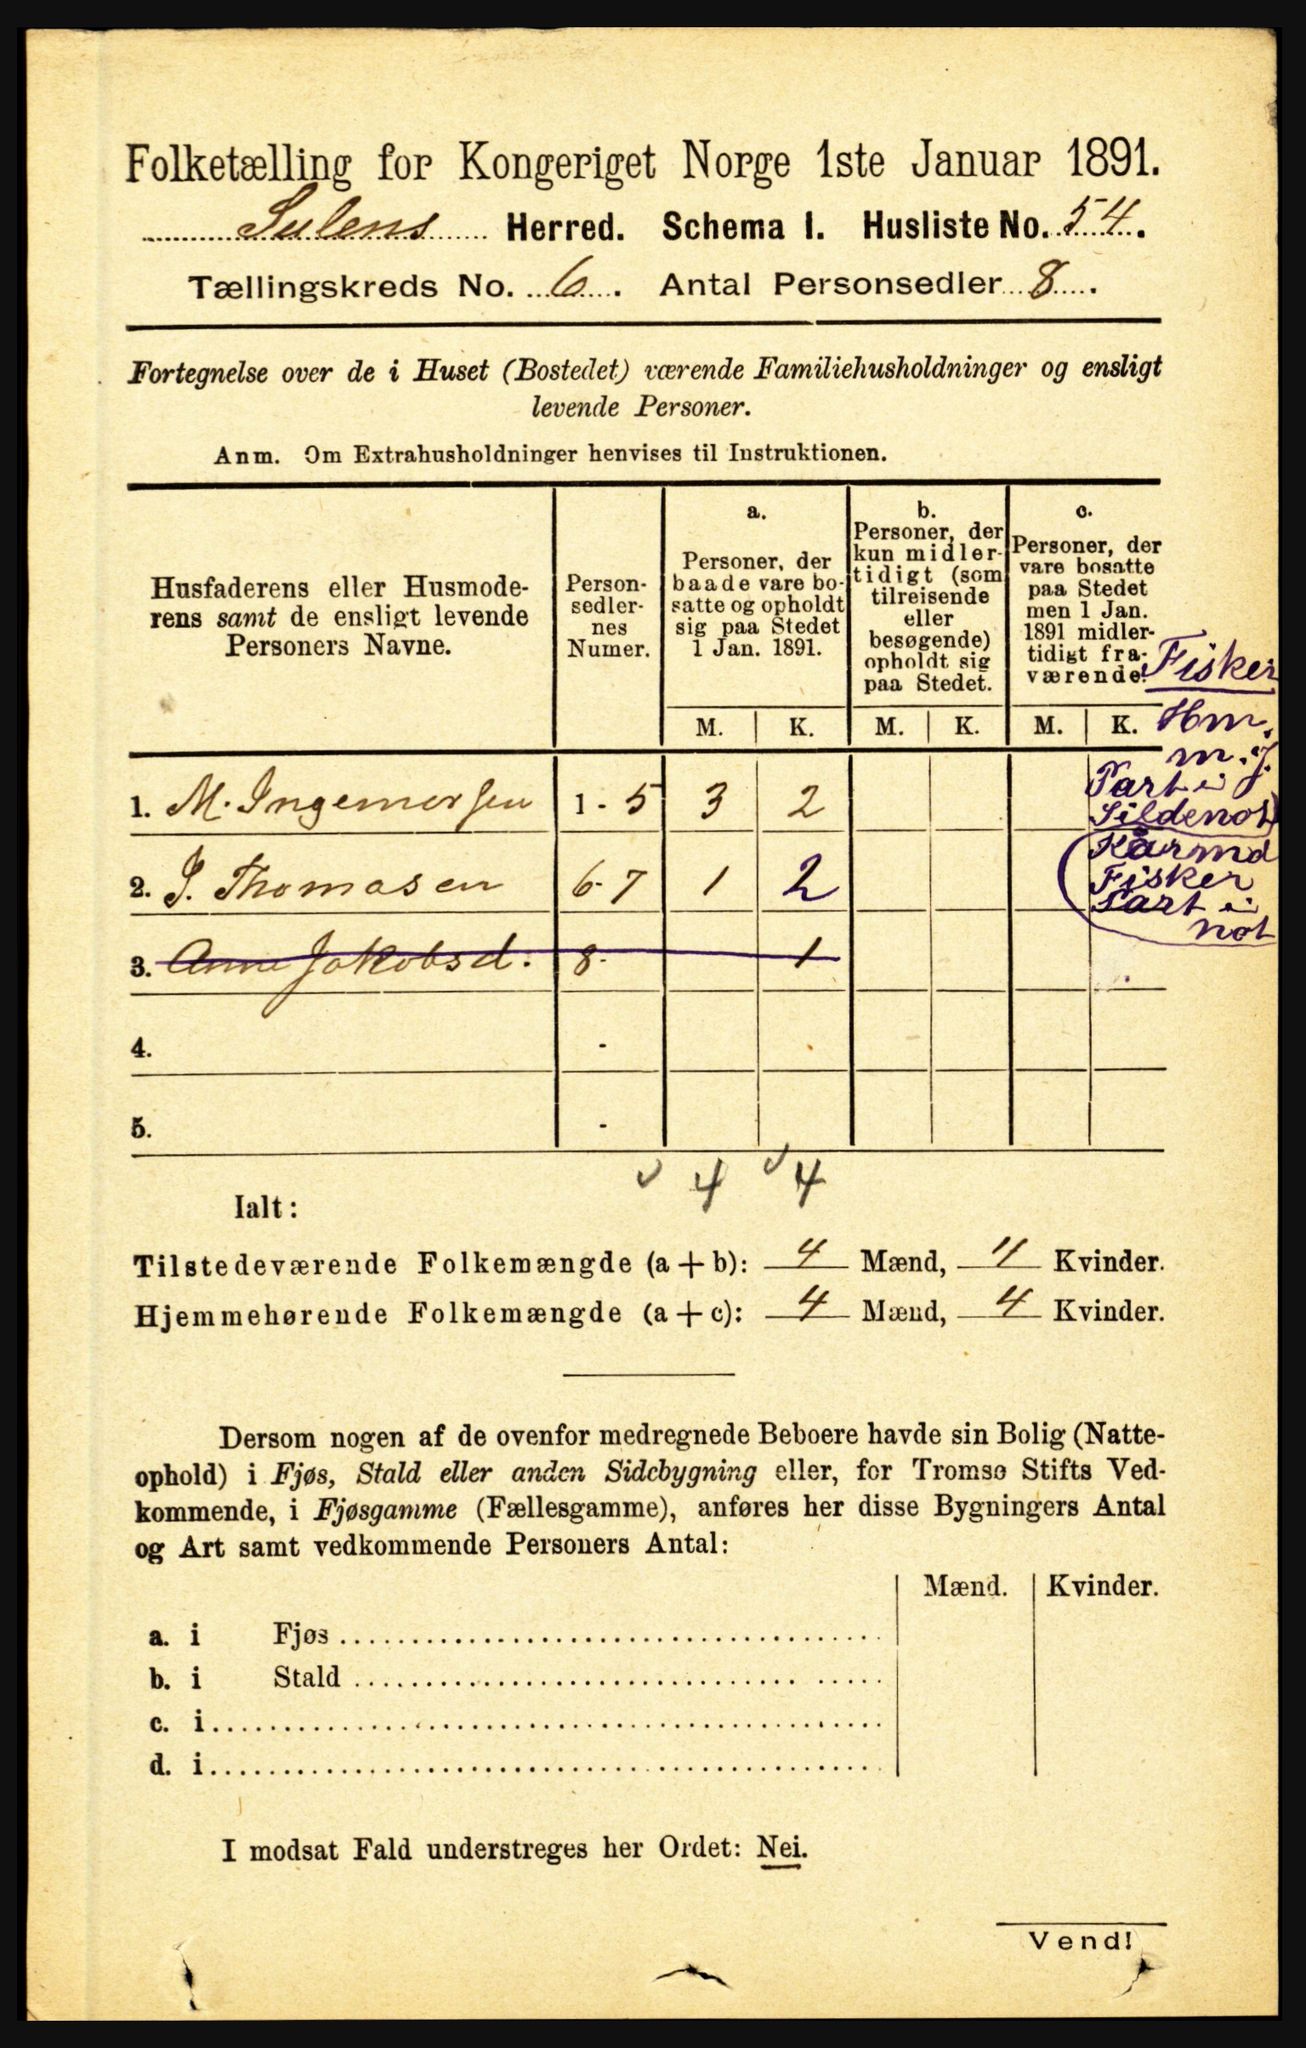 Folketælling for Kongeriget Norge 1ste Januar 1891.
Sulens Herred. Schema I. Husliste No. 54.
Tællingskreds No. 6. Antal Personsedler 8.
Fortegnelse over de i Huset (Bostedet) værende Familiehusholdninger og ensligt
levende Personer.
Anm. Om Extrahusholdninger henvises til Instruktionen.
Husfaderens eller Husmode-
rens samt de ensligt levende
Personers Navne.
Person-
sedler-
nes
Numer.
a.
Personer, der
baade vare bo-
satte og opholdt
sig paa Stedet
1 Jan. 1891.
b.
Personer, der
kun midler-
tidigt (som
tilreisende
eller
besøgende)
opholdt sig
paa Stedet.
c.
Personer, der
vare bosatte
paa Stedet
men 1 Jan.
1891 midler-
tidigt fra-
værende.
Fisker
M. K. M. K. M. K. Hm.
m. J.
1. M. Ingemorsen 1 - 5 3 2
Part i
Sildenot
2. J. Thomasen 6 - 7 1 2
Kårmd
Fisker
Part i
not
3. Anne Jakobsd. 8 - 1
4. -
5. -
4 4
Ialt:
Tilstedeværende Folkemængde (a + b): 4 Mænd, 4 Kvinder.
Hjemmehørende Folkemængde (a + c): 4 Mænd, 4 Kvinder.
Dersom nogen af de ovenfor medregnede Beboere havde sin Bolig (Natte-
ophold) i Fjøs, Stald eller anden Sidebygning eller, for Tromsø Stifts Ved-
kommende, i Fjøsgamme (Fællesgamme), anføres her disse Bygningers Antal
og Art samt vedkommende Personers Antal:
Mænd. Kvinder.
a. i Fjøs
b. i Stald
c. i
d. i
I modsat Fald understreges her Ordet: Nei.
Vend!